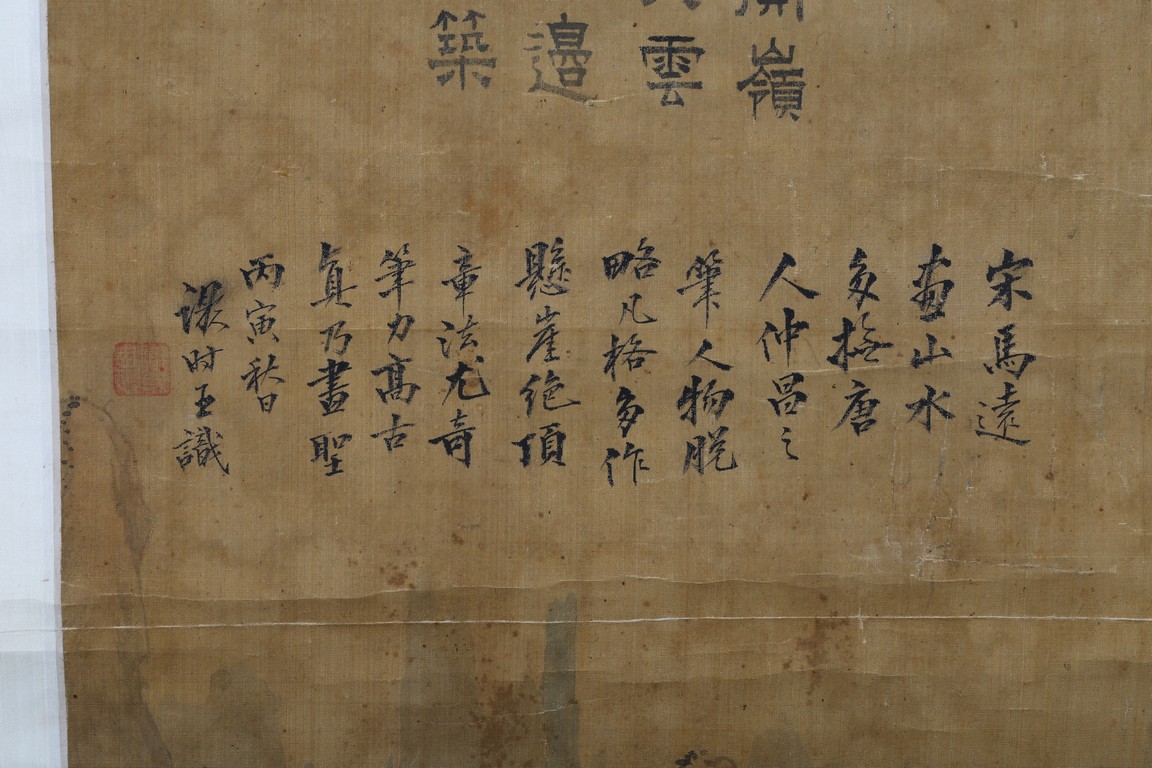 嶺
雲
邊
築
宋馬遠
畫山水
多撫唐
人仲昌之
筆人物脱
略凡格多作
懸崖絶頂
章法尤奇
筆力高古
真乃畫聖
丙寅秋日
時王識